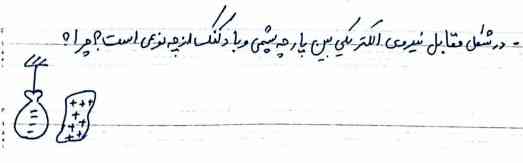 - در شکل مقابل نیروی الکتریکی بین پارچه پشمی و بادکنک از چه نوعی است؟ چرا؟